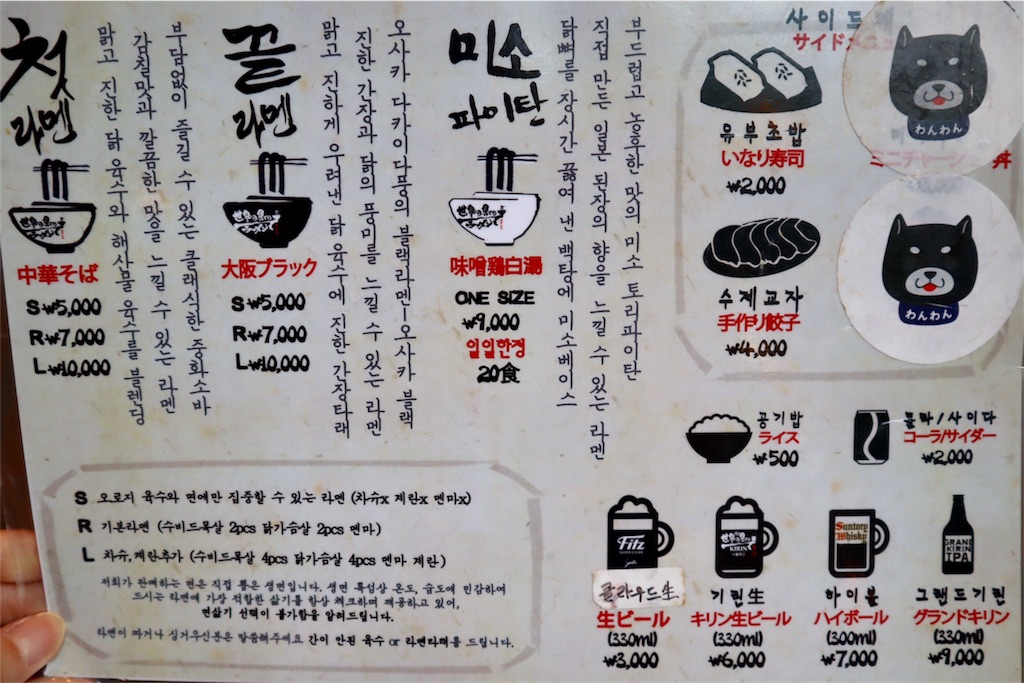 첫
라멘
世界の名のラーメン
中華そば
S ₩5,000
R ₩7,000
L ₩10,000
부담없이 즐길 수 있는 클래식한 중화소바
감칠맛과 깔끔한 맛을 느낄 수 있는 라멘
맑고 진한 닭 육수와 해산물 육수를 블렌딩
끝
라멘
大阪ブラック
S ₩5,000
R ₩7,000
L ₩10,000
오사카 다카이다풍의 블랙라멘-오사카 블랙
진한 간장과 닭의 풍미를 느낄 수 있는 라멘
맑고 진하게 우려낸 닭 육수에 진한 간장타래
미소
파이탄
味噌鶏白湯
ONE SIZE
₩9,000
일일한정
20食
부드럽고 농후한 맛의 미소 토리파이탄
직접 만든 일본 된장의 향을 느낄 수 있는 라멘
닭뼈를 장시간 끓여 낸 백탕에 미소베이스
사이드메
サイドメニュ
유부초밥
いなり寿司
₩2,000
수제교자
手作り餃子
₩4,000
わんわん
ミニチャーシュー丼
わんわん
공기밥
ライス
₩500
콜라/사이다
コーラ/サイダー
₩2,000
S 오로지 육수와 면에만 집중할 수 있는 라멘 (차슈x 계란x 멘마x)
R 기본라멘 (수비드목살 2pcs 닭가슴살 2pcs 멘마)
L 차슈,계란추가 (수비드목살 4pcs 닭가슴살 4pcs 멘마 계란)
저희가 판매하는 면은 직접 뽑은 생면입니다. 생면 특성상 온도, 습도에 민감하여
드시는 라멘에 가장 적합한 삶기를 항상 체크하며 제공하고 있어,
면삶기 선택이 불가함을 알려드립니다.
라멘이 짜거나 싱거우신분은 말씀해주세요 간이 안된 육수 or 라멘타래를 드립니다.
Fitz
SUPER CLEAR
클라우드生
生ビール
(330ml)
₩3,000
KIRIN
기린生
キリン生ビール
(330ml)
₩6,000
Suntory
Whisky
하이볼
ハイボール
(300ml)
₩7,000
GRAND
KIRIN
IPA
그랜드기린
グランドキリン
(330ml)
₩9,000